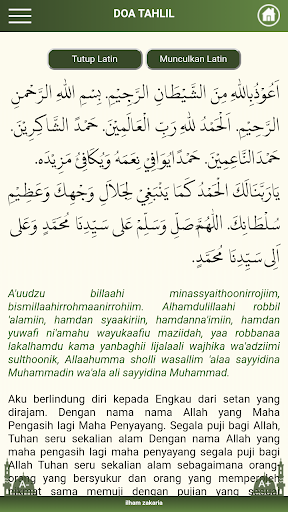 DOA TAHLIL
Tutup Latin
Munculkan Latin
اَعُوْذُبِاللهِ مِنَ الشَّيْطَانِ الرَّجِيْمِ. بِسْمِ اللهِ الرَّحْمٰنِ
الرَّحِيْمِ. اَلْحَمْدُ لِلهِ رَبِّ الْعَالَمِيْنَ. حَمْدً الشَّاكِرِيْنَ.
حَمْدَ النَّاعِمِيْنَ. حَمْدً ايُوَافِيْ نِعَمَهُ وَيُكَافِىُ مَزِيْدَه.
يَارَبَّنَالَكَ الْحَمْدُ كَمَا يَنْبَغِيْ لِجَلَالِ وَجْهِكَ وَعَظِيْمِ
سُلْطَانِكَ. اَللّٰهُمَّ صَلِّ وَسَلِّمْ عَلَى سَيِّدِنَا مُحَمَّدٍ وَعَلَى
اَلِى سَيِّدِنَا مُحَمَّدٍ.
A'uudzu billaahi minassyaithoonirrojiim,
bismillaahirrohmaanirrohiim. Alhamdulillaahi robbil
'alamiin, hamdan syaakiriin, hamdanna'imiin, hamdan
yuwafi ni'amahu wayukaafiu maziidah, yaa robbanaa
lakalhamdu kama yanbaghii lijalaali wajhika wa'adziimi
sulthoonik, Allaahumma sholli wasallim 'alaa sayyidina
Muhammadin wa'ala ali sayyidina Muhammad.
Aku berlindung diri kepada Engkau dari setan yang
dirajam. Dengan nama nama Allah yang Maha
Pengasih lagi Maha Penyayang. Segala puji bagi Allah,
Tuhan seru sekalian alam Dengan nama Allah yang
maha pengasih lagi maha penyayang segala puji bagi
Allah Tuhan seru sekalian alam sebagaimana orang-
orang yang bersyukur dan orang yang memperoleh
nikmat sama memuji dengan pujian yang sesuai
ilham zakaria